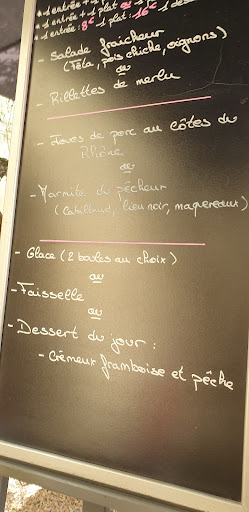 * 1 entrée + 1 plat ou 1
* 1 entrée + 1 plat + 1 des
: 8€ 1 plat : 16€
- Salade fraîcheur
(Féta, pois chiche, oignons)
ou
- Rillettes de merlu
- Joues de porc au côtes du
Rhône
ou
- Marmite du pêcheur
(Cabillaud, lieu noir, maquereaux)
- Glace (2 boules au choix)
ou
- Faisselle
ou
- Dessert du jour :
- Crémeux framboise et pêche